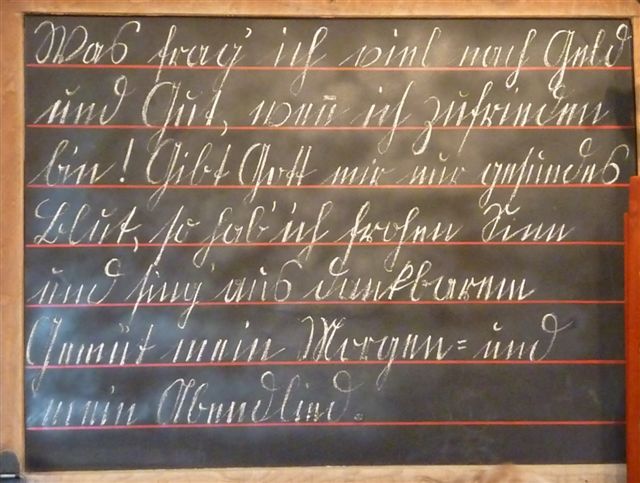 Was frag' ich viel nach Geld
und Gut, weñ ich zufrieden
bin! Gibt Gott mir nur gesundes
Blut, so hab' ich frohen Sinn
und sing' aus dankbarem
Gemüt mein Morgen= und
mein Abendlied.